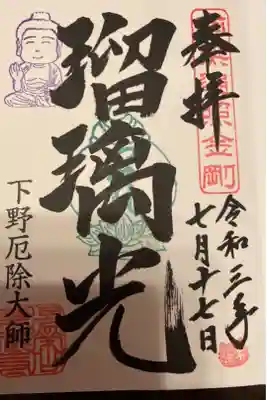 奉拝
令和三年
七月十七日
瑠璃光
下野厄除大師